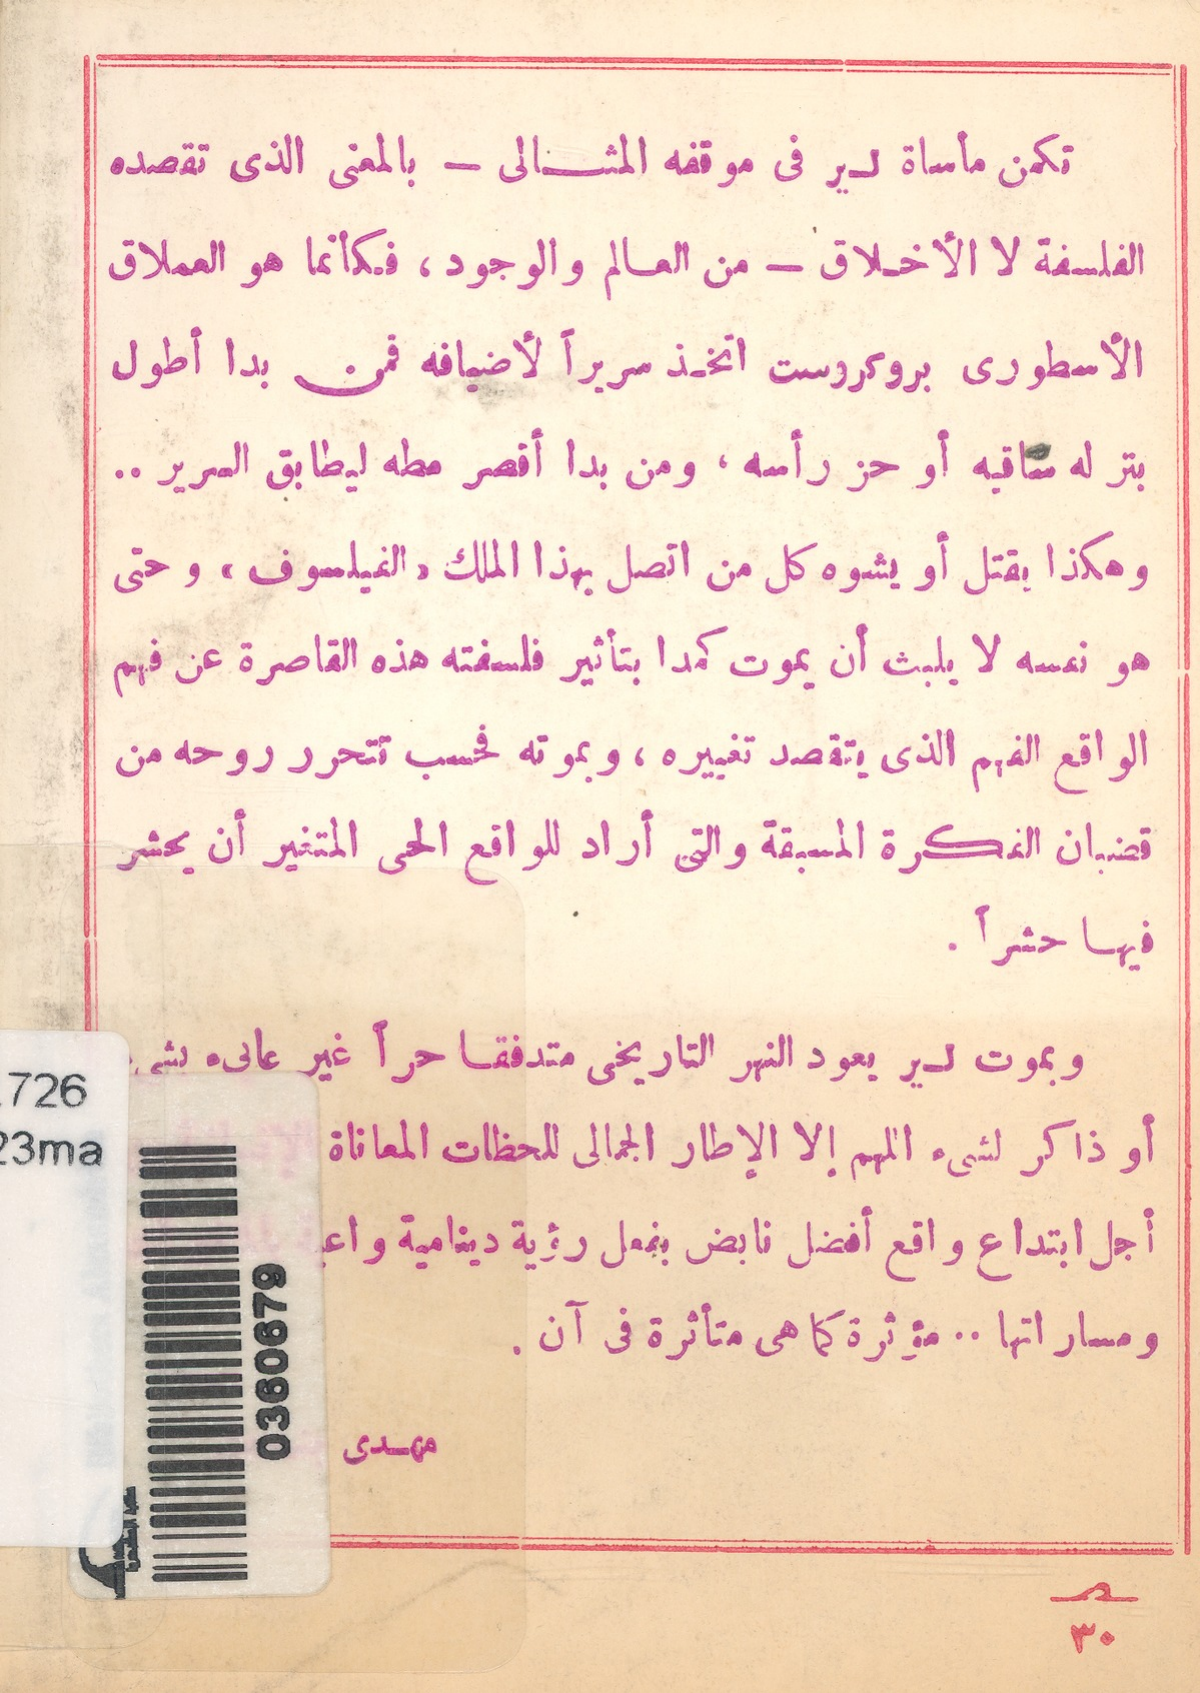 تكمن مأساة لير فى موقفه المثالى — بالمعنى الذى تقصده
الفلسفة لا الأخلاق — من العالم والوجود ، فكأنما هو العملاق
الأسطورى بروكروست اتخذ سريراً لأضيافه فمن بدا أطول
بتر له ساقيه أو حز رأسه ، ومن بدا أقصر مطه ليطابق السرير ..
وهكذا يقتل أو يشوه كل من اتصل بهذا الملك « الفيلسوف » ، و حتى
هو نفسه لا يلبث أن يموت كمدا بتأثير فلسفته هذه القاصرة عن فهم
الواقع الفهم الذى يتقصد تغييره ، وبموته فحسب تتحرر روحه من
قضبان الفكرة المسبقة والتى أراد للواقع الحى المتغير أن يحشر
فيها حشراً .
وبموت لير يعود النهر التاريخى متدفقا حراً غير عابىء بشىء
أو ذاكر لشىء اللهم إلا الإطار الجمالى للحظات المعاناة
أجل ابتداع واقع أفضل نابض بفعل رؤية دينامية
ومساراتها .. مؤثرة كما هى متأثرة فى آن .
مهدى
.726
23ma
0360679
٣٠